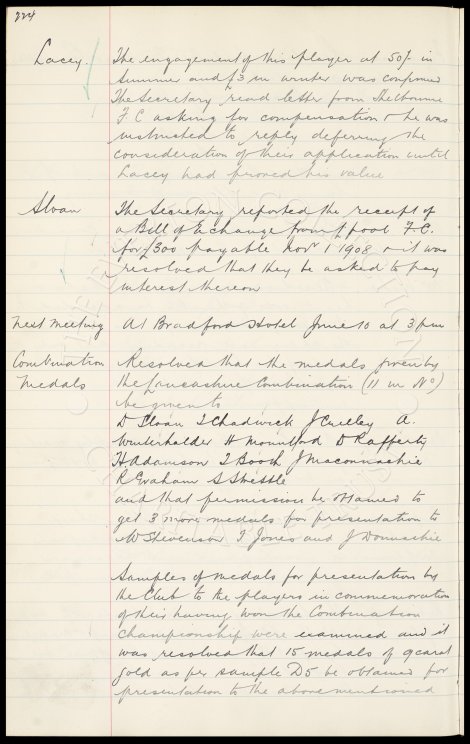 224
Lacey. The engagement of this player at 50/- in
Summer and £3 in winter was confirmed
The Secretary read letter from Shelbourne
F C asking for compensation & he was
instructed to reply deferring the
consideration of their application until
Lacey had proved his value
Sloan The Secretary reported the receipt of
a Bill of Exchange from L'pool F.C.
for £300 payable Novr 1 1908 & it was
resolved that they be asked to pay
interest thereon
Next Meeting At Bradford Hotel June 10 at 3 pm
Combination Resolved that the medals given by
Medals the Lancashire Combination (11 in No)
be given to
D Sloan J Chadwick J A.
Winterholder H Mountford D Rafferty
H Adamson T Booth J Maconnachie
R Graham S Strettle
and that permission be obtained to
get 3 more medals for presentation to
W Stevenson T Jones and J Donnachie
Samples of medals for presentation by
the Club to the players in commemoration
of their having won the Combination
Championship were examined and it
was resolved that 15 medals of 9 carat
gold as per sample D5 be obtained for
presentation to the abovementioned